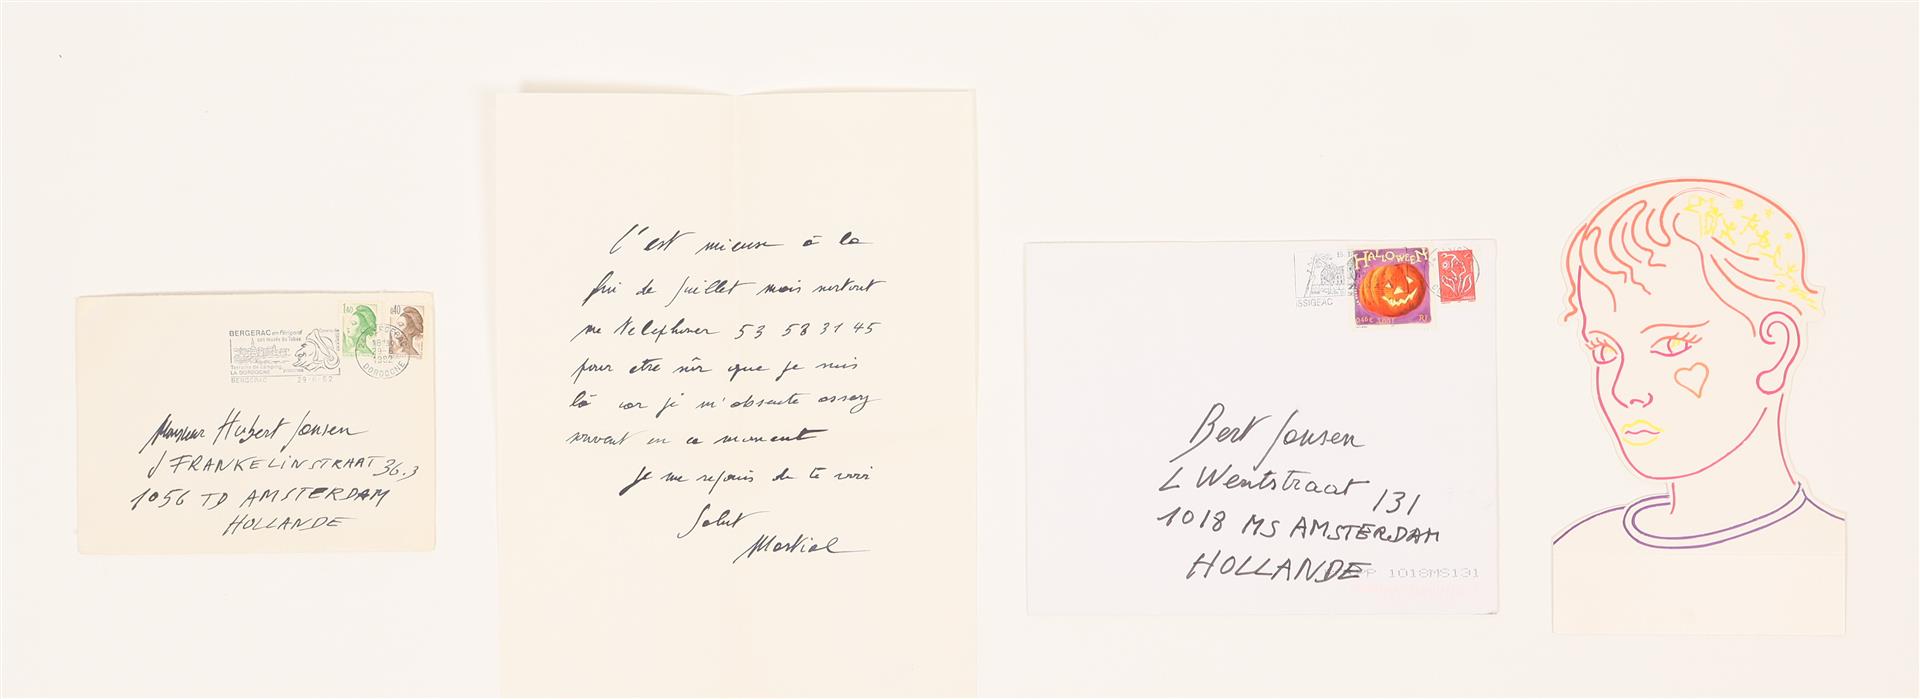 BERGERAC en Périgord
son musée du Tabac
Terrains de camping
LA DORDOGNE
BERGERAC 29-6-82
1,60
0,40
18H
29-6
1982
DORDOGNE
Monsieur Hubert Jansen
J FRANKELINSTRAAT 36.3
1056 TD AMSTERDAM
HOLLANDE
C'est mieux à la
fin de Juillet mais surtout
me telephoner 53 58 31 45
pour etre sûr que je suis
là car je m'absente assez
souvent en ce moment
Je me rejouis de te voir
Salut
Martial
ISSIGEAC
HALLOWEEN
0,46€
RF
Bert Jansen
L Wentstraat 131
1018 MS AMSTERDAM
HOLLANDE
1018MS131